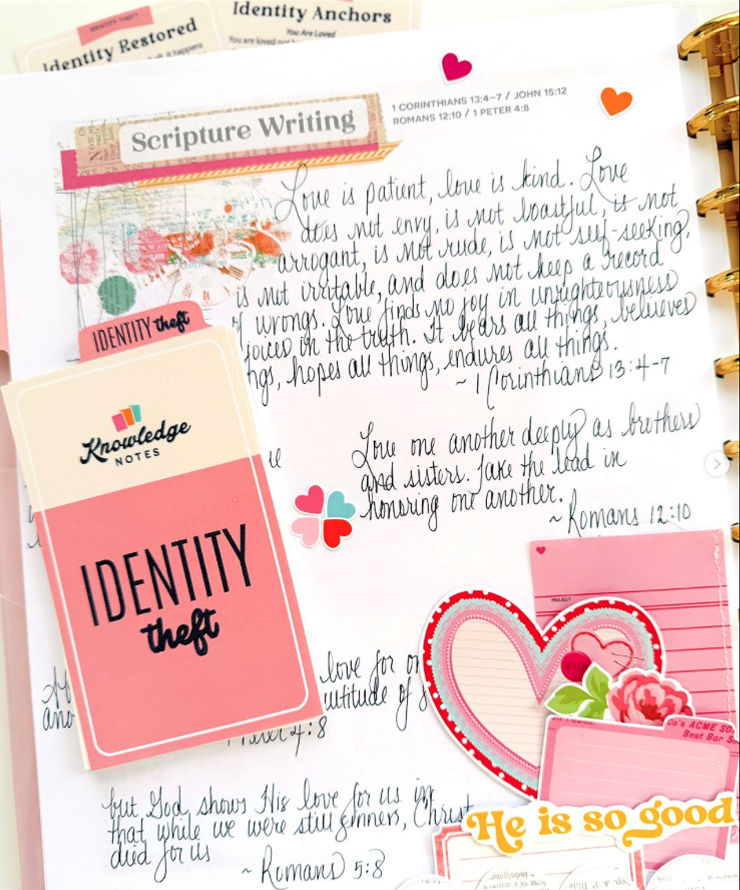 IDENTITY THEFT
Identity Restored
it happens
Identity Anchors
You Are Loved
You are loved not
Scripture Writing
1 CORINTHIANS 13:4–7 / JOHN 15:12
ROMANS 12:10 / 1 PETER 4:8
Love is patient, love is kind. Love
does not envy, is not boastful, is not
arrogant, is not rude, is not self-seeking,
is not irritable, and does not keep a record
of wrongs. Love finds no joy in unrighteousness
joices in the truth. It bears all things, believes
ngs, hopes all things, endures all things.
~ 1 Corinthians 13:4-7
IDENTITY theft
Knowledge
NOTES
IDENTITY
theft
Love one another deeply as brothers
and sisters. Take the lead in
honoring one another.
~ Romans 12:10
PROJECT
love for on
ultitude of s
Peter 4:8
but God shows His love for us in
that while we were still sinners, Christ
died for us
~ Romans 5:8
Co's ACME SO
Best Bar So
He is so good